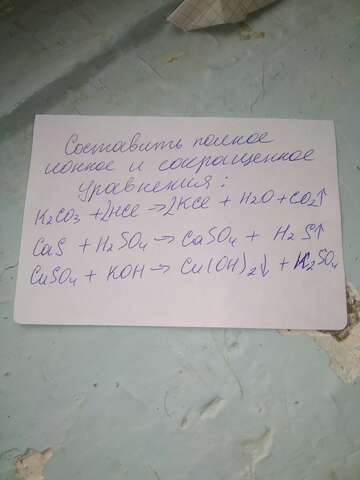 Составить полное
ионное и сокращенное
уравнения:
K₂CO₃ + 2HCl → 2KCl + H₂O + CO₂↑
CaS + H₂SO₄ → CaSO₄ + H₂S↑
CuSO₄ + KOH → Cu(OH)₂↓ + K₂SO₄